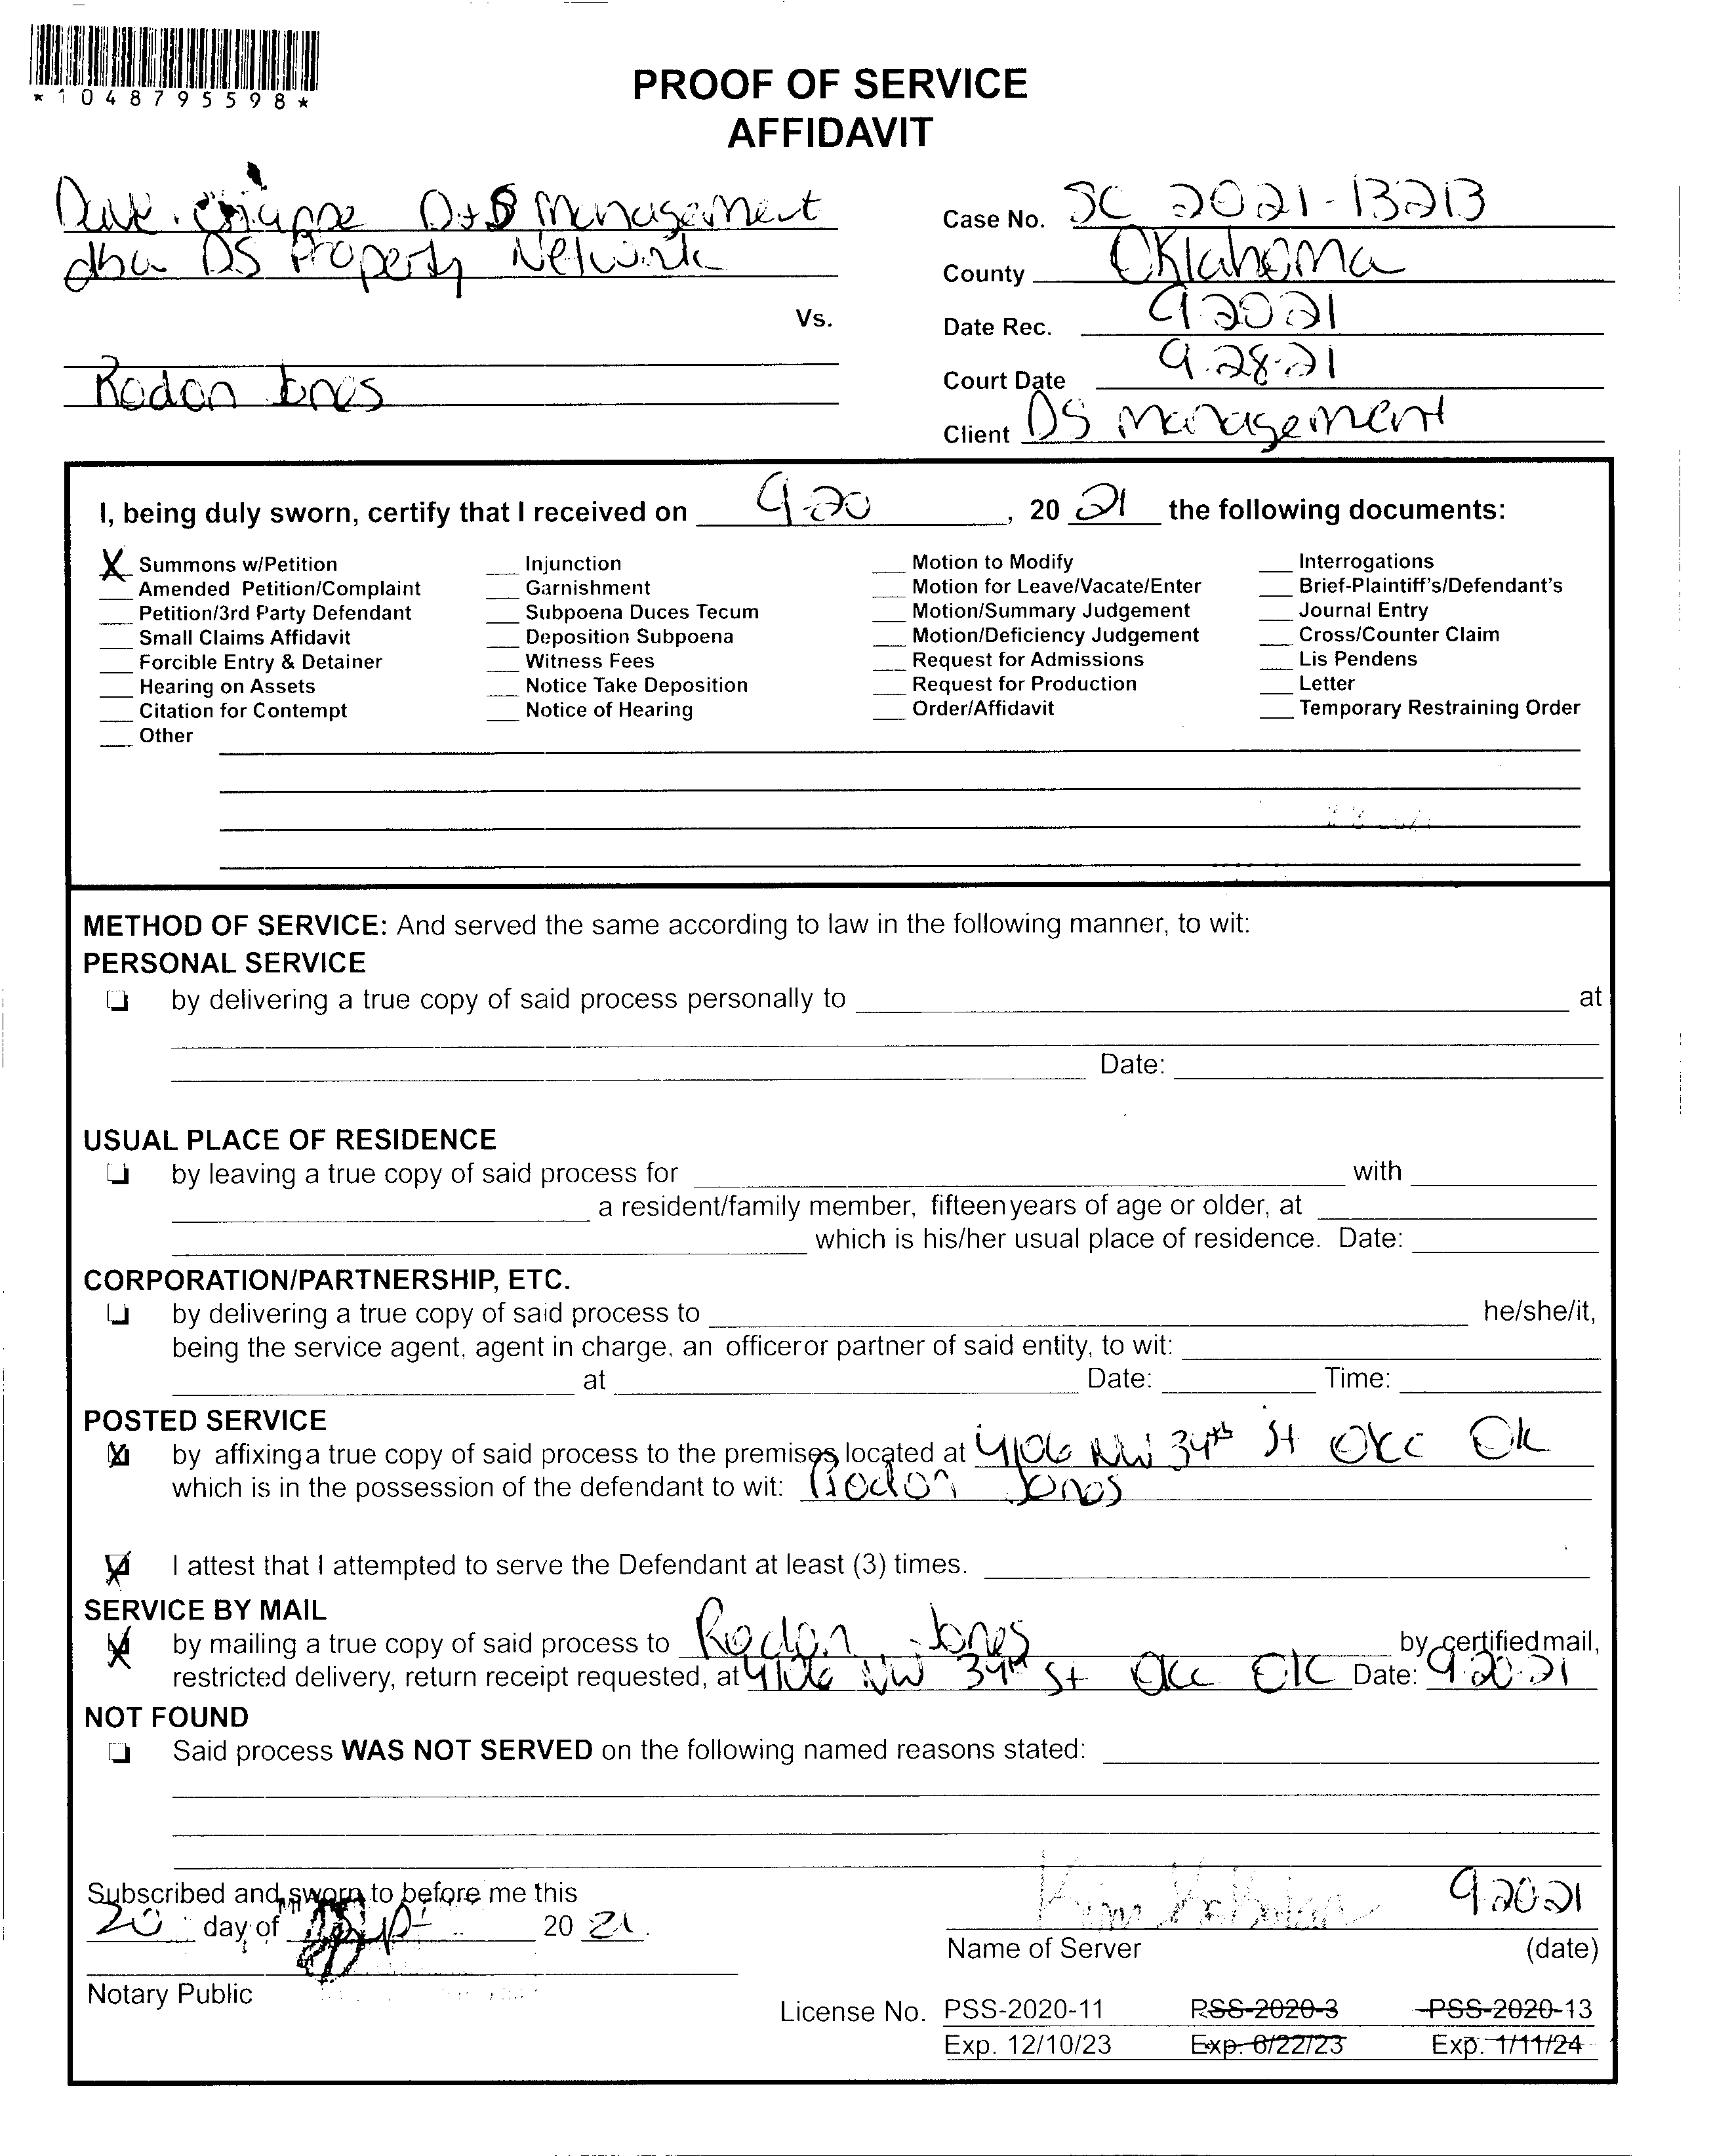 *1048795598*
PROOF OF SERVICE
AFFIDAVIT
D&S Management
dba DS Property Network
Vs.
Rodan Jones
Case No. SC 2021-13213
County Oklahoma
Date Rec. 9 20 21
Court Date 9.28.21
Client DS Management
I, being duly sworn, certify that I received on 9-20, 20 21 the following documents:
X Summons w/Petition
Amended Petition/Complaint
Petition/3rd Party Defendant
Small Claims Affidavit
Forcible Entry & Detainer
Hearing on Assets
Citation for Contempt
Other
Injunction
Garnishment
Subpoena Duces Tecum
Deposition Subpoena
Witness Fees
Notice Take Deposition
Notice of Hearing
Motion to Modify
Motion for Leave/Vacate/Enter
Motion/Summary Judgement
Motion/Deficiency Judgement
Request for Admissions
Request for Production
Order/Affidavit
Interrogations
Brief-Plaintiff's/Defendant's
Journal Entry
Cross/Counter Claim
Lis Pendens
Letter
Temporary Restraining Order
METHOD OF SERVICE: And served the same according to law in the following manner, to wit:
PERSONAL SERVICE
by delivering a true copy of said process personally to at
Date:
USUAL PLACE OF RESIDENCE
by leaving a true copy of said process for with
a resident/family member, fifteen years of age or older, at
which is his/her usual place of residence. Date:
CORPORATION/PARTNERSHIP, ETC.
by delivering a true copy of said process to he/she/it,
being the service agent, agent in charge, an officer or partner of said entity, to wit:
at Date: Time:
POSTED SERVICE
X by affixing a true copy of said process to the premises located at 4106 NW 34th St OKC OK
which is in the possession of the defendant to wit: Rodan Jones
X I attest that I attempted to serve the Defendant at least (3) times.
SERVICE BY MAIL
X by mailing a true copy of said process to Rodan Jones by certified mail,
restricted delivery, return receipt requested, at 4106 NW 34th St OKC OK Date: 9.20.21
NOT FOUND
Said process WAS NOT SERVED on the following named reasons stated:
Subscribed and sworn to before me this
20 day of Sept 20 21.
Notary Public
9 20 21
Name of Server (date)
License No. PSS-2020-11 PSS-2020-3 PSS-2020-13
Exp. 12/10/23 Exp. 6/22/23 Exp. 1/11/24